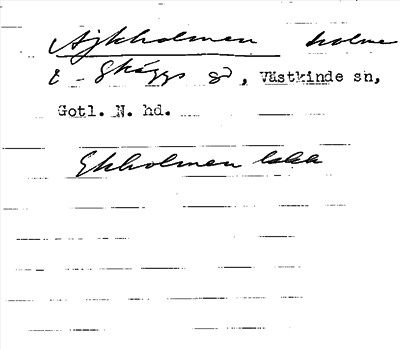 Ajkholmen holme
i Skäggs gd, Västkinde sn,
Gotl. N. hd.
Ekholmen lokk